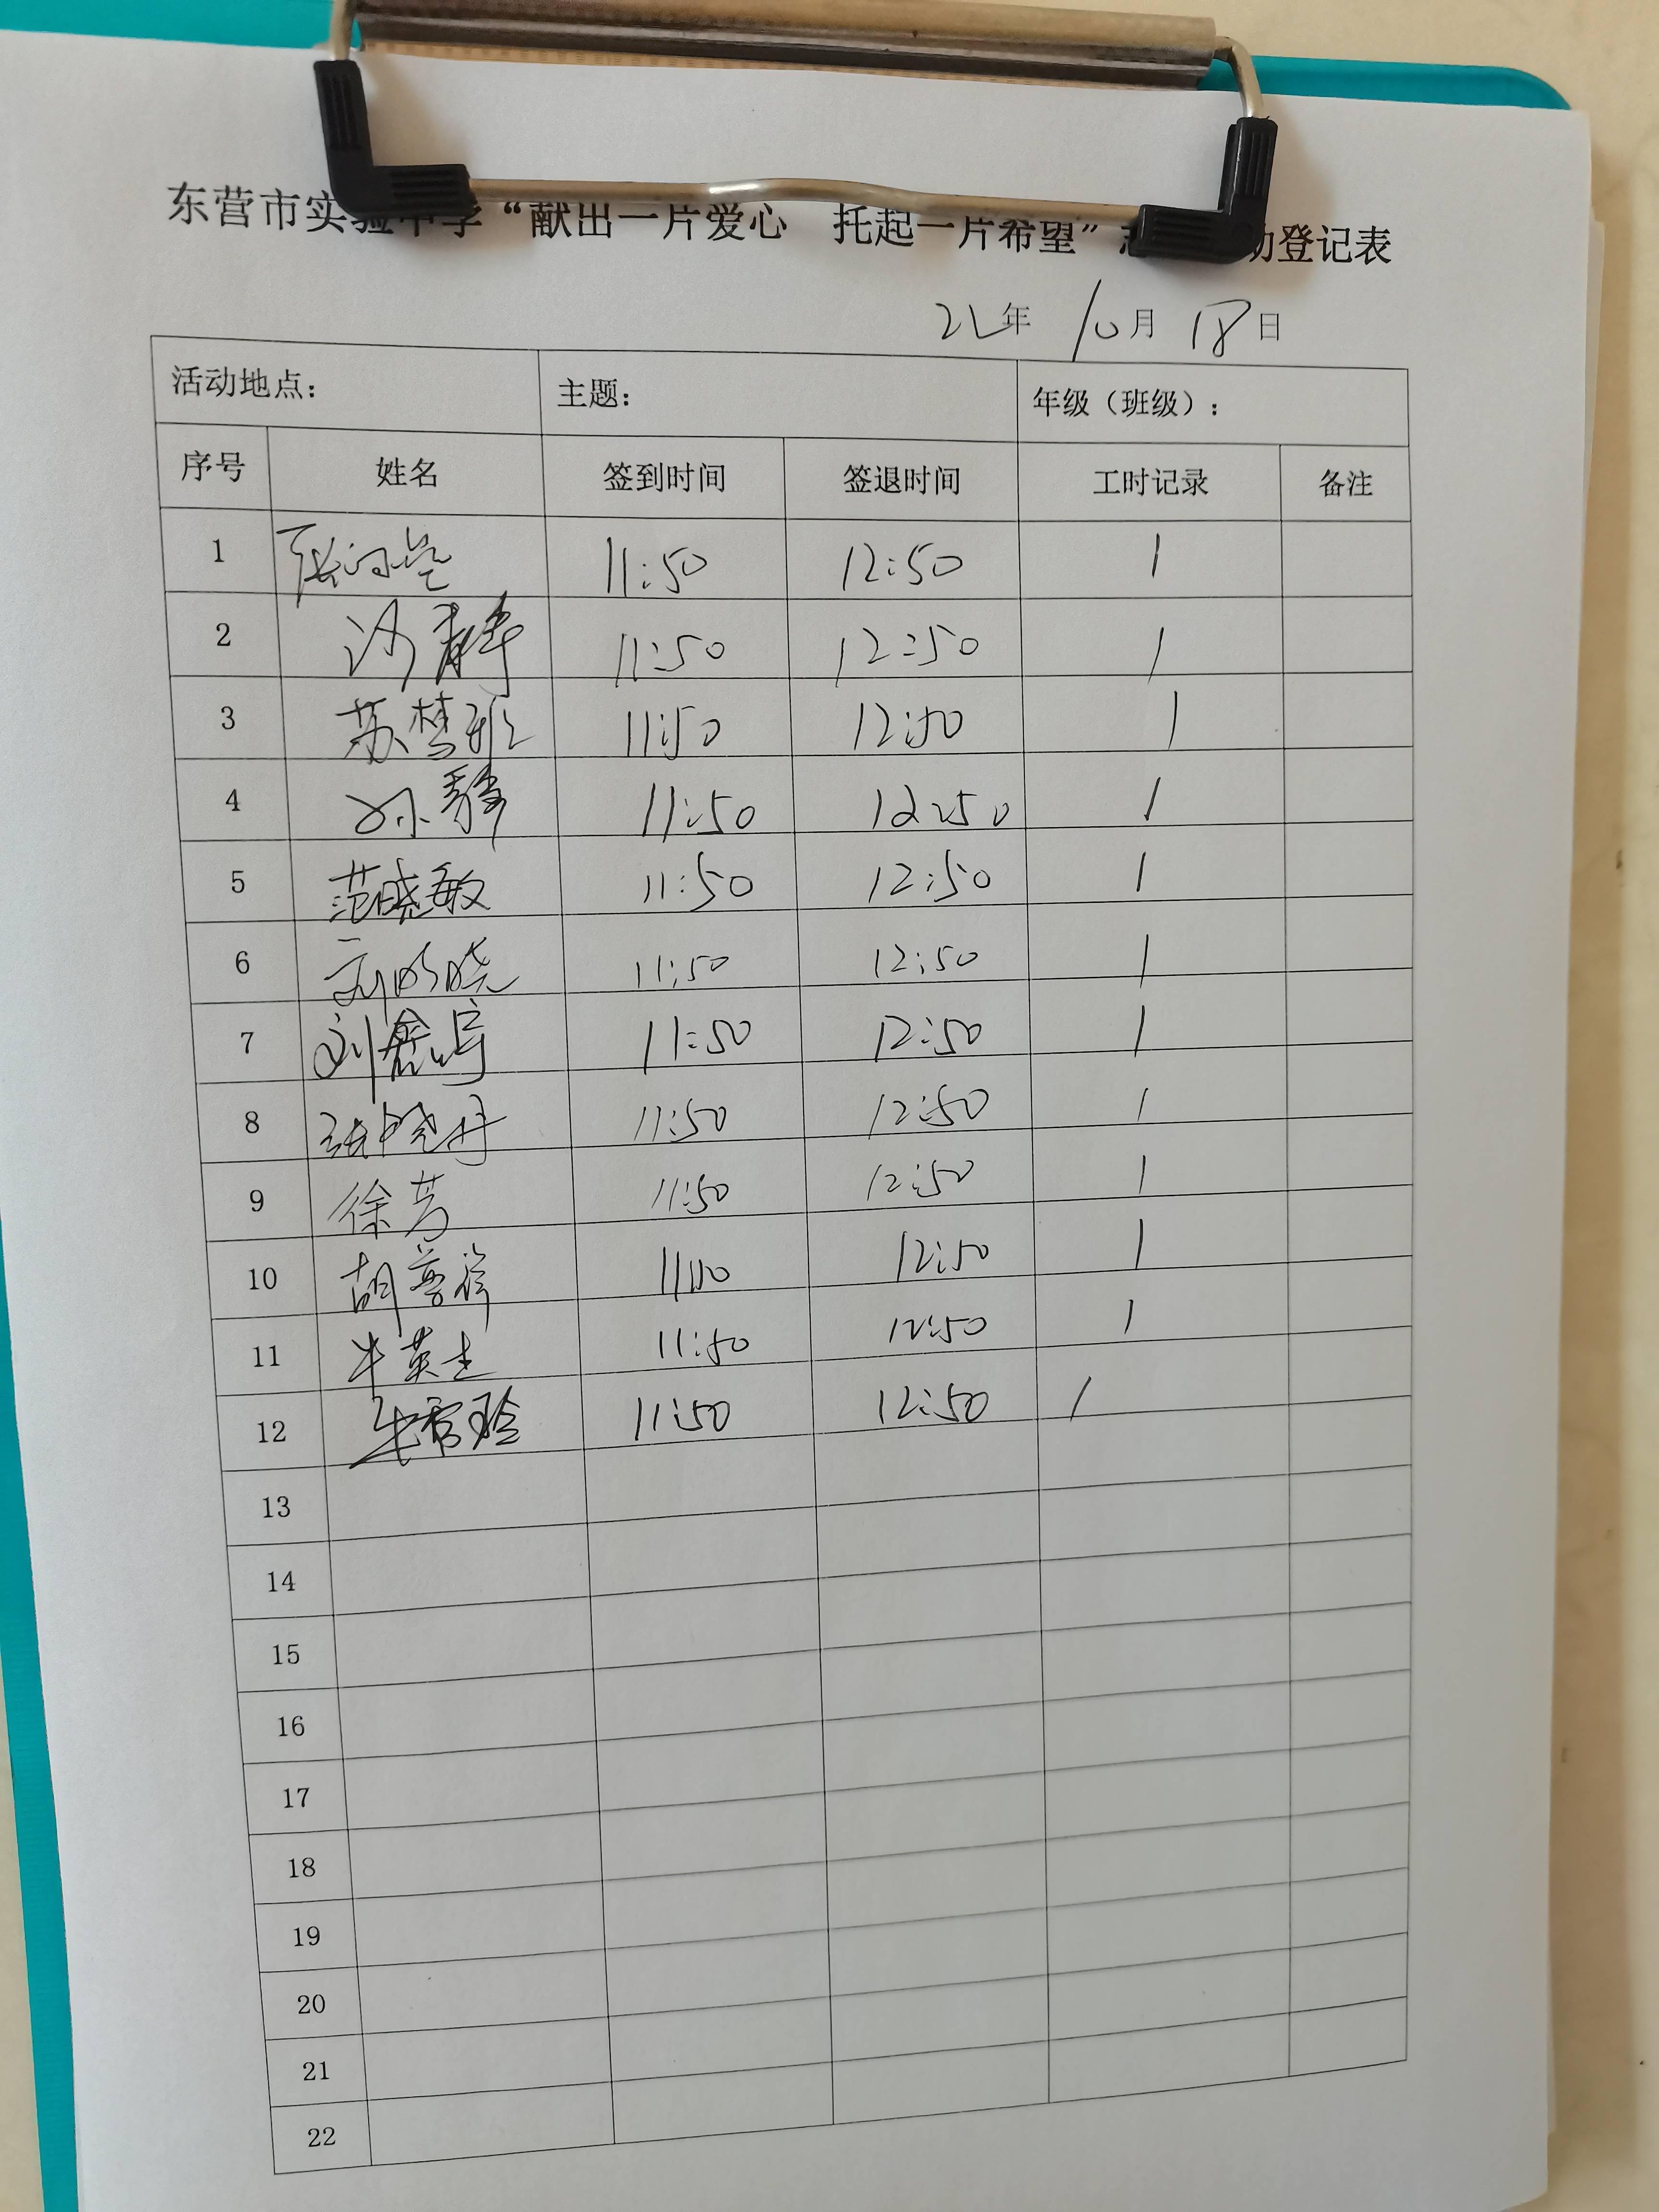 东营市实验中学“献出一片爱心 托起一片希望” 动登记表
21年 10月 18日
活动地点： 主题： 年级（班级）：
序号 姓名 签到时间 签退时间 工时记录 备注
1 11:50 12:50 1
2 沙静 11:50 12:50 1
3 苏梦雅 11:50 12:50 1
4 孙静 11:50 12:50 1
5 范晓敏 11:50 12:50 1
6 刘明晓 11:50 12:50 1
7 11:50 12:50 1
8 张晓丹 11:50 12:50 1
9 徐芳 11:50 12:50 1
10 12:50 1
11 牛英杰 11:50 12:50 1
12 11:50 12:50 1
13
14
15
16
17
18
19
20
21
22